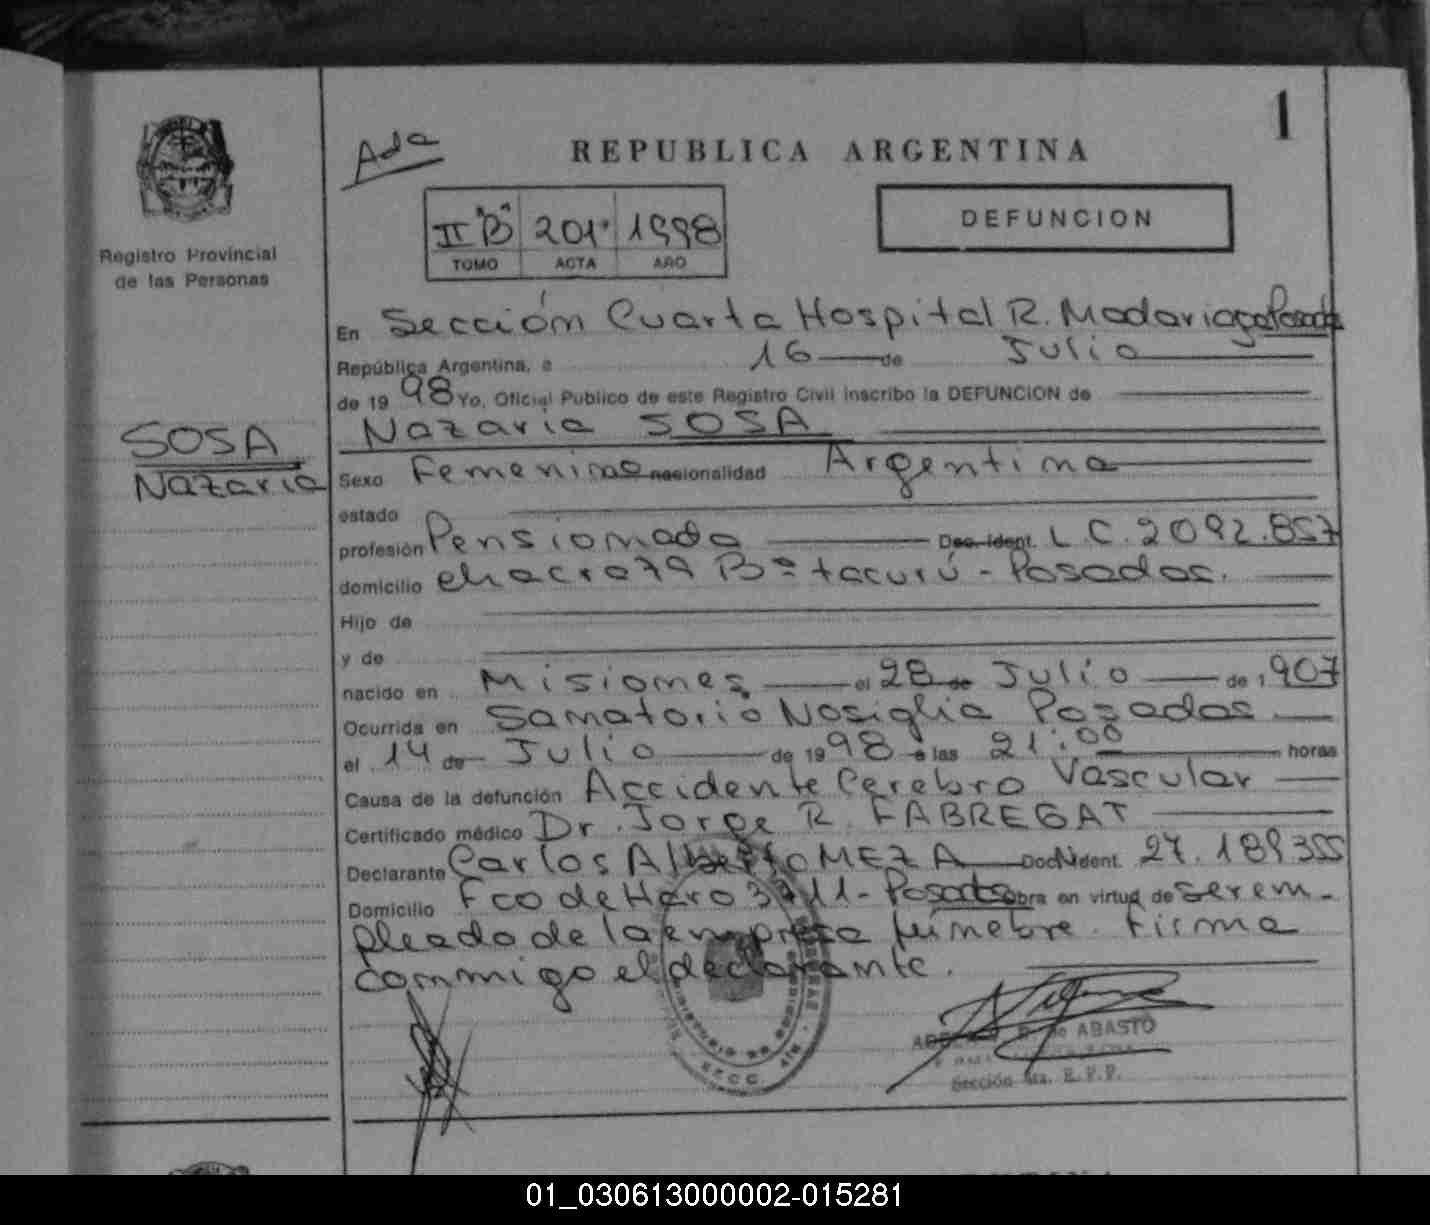 1
Ada
REPUBLICA ARGENTINA
II "B" 201 1998
TOMO ACTA AÑO
DEFUNCION
Registro Provincial
de las Personas
SOSA
Nazaria
En Sección Cuarta Hospital R. Madariaga Posadas
República Argentina, a 16 de Julio
de 19 98 Yo, Oficial Publico de este Registro Civil inscribo la DEFUNCION de
Nazaria SOSA
Sexo Femenino nacionalidad Argentina
estado
profesión Pensionada Doc. ident. L.C. 2092.857
domicilio chacra 79 Bº tacurú - Posadas.
Hijo de
y de
nacido en Misiones el 28 de Julio de 1 907
Ocurrida en Sanatorio Nosiglia Posadas
el 14 de Julio de 19 98 a las 21:00 horas
Causa de la defunción Accidente Cerebro Vascular
Certificado médico Dr. Jorge R. FABREGAT
Declarante Carlos Alberto MEZA Doc. Ident. 27.189.355
Domicilio Fco de Haro 3711 - Posadas obra en virtud de ser em-
pleado de la empresa fúnebre. Firma
conmigo el declarante.
de ABASTO
Sección 4ta. R.P.P.
01_030613000002-015281